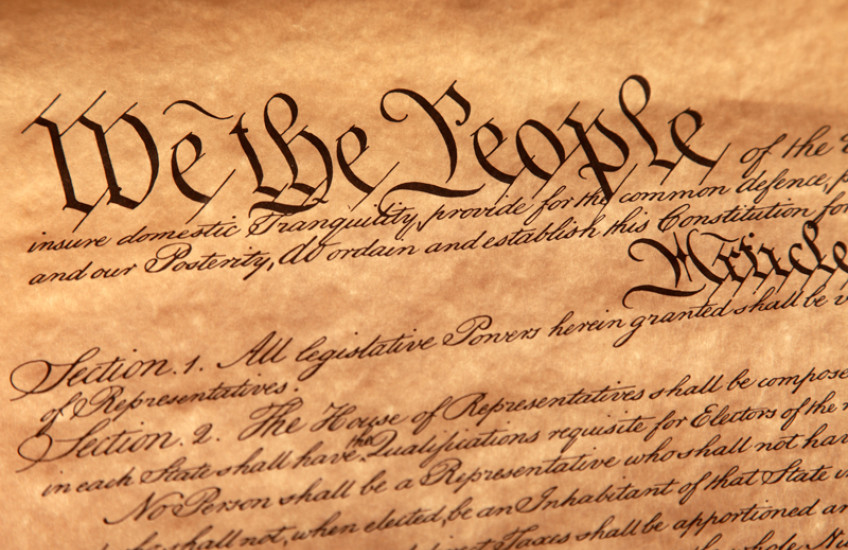 We the People of the
insure domestic Tranquility, provide for the common defence,
and our Posterity, do ordain and establish this Constitution for
Article
Section. 1. All legislative Powers herein granted shall be
of Representatives.
Section. 2. The House of Representatives shall be
in each State shall have the Qualifications requisite for Electors of the
No Person shall be a Representative who shall not
shall not, when elected, be an Inhabitant of that State
Taxes shall be apportioned